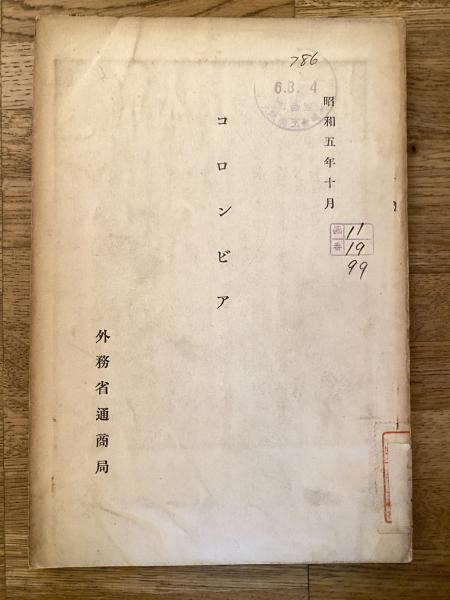 786
6.8.4
昭和五年十月
函 11
番 19
99
コロンビア
外務省通商局